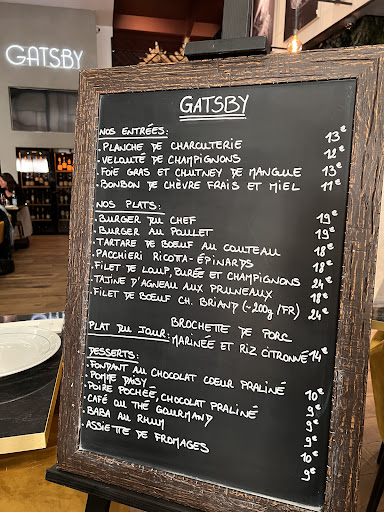 GATSBY
GATSBY
NOS ENTRÉES:
· PLANCHE DE CHARCUTERIE 13€
· VELOUTÉ DE CHAMPIGNONS 12€
· FOIE GRAS ET CHUTNEY DE MANGUE 13€
· BONBON DE CHÈVRE FRAIS ET MIEL 11€
NOS PLATS:
· BURGER DU CHEF 19€
· BURGER AU POULET 19€
· TARTARE DE BOEUF AU COUTEAU 18€
· PACCHIERI RICOTTA-ÉPINARDS 18€
· FILET DE LOUP, PURÉE ET CHAMPIGNONS 24€
· TAJINE D'AGNEAU AUX PRUNEAUX 18€
· FILET DE BOEUF CH. BRIAND (~200g /FR) 24€
PLAT DU JOUR: BROCHETTE DE PORC
MARINÉE ET RIZ CITRONNÉ 14€
DESSERTS:
· FONDANT AU CHOCOLAT COEUR PRALINÉ 10€
· POMPE DAISY 9€
· POIRE POCHÉE, CHOCOLAT PRALINÉ 9€
· CAFÉ OU THÉ GOURMAND 9€
· BABA AU RHUM 10€
· ASSIETTE DE FROMAGES 9€